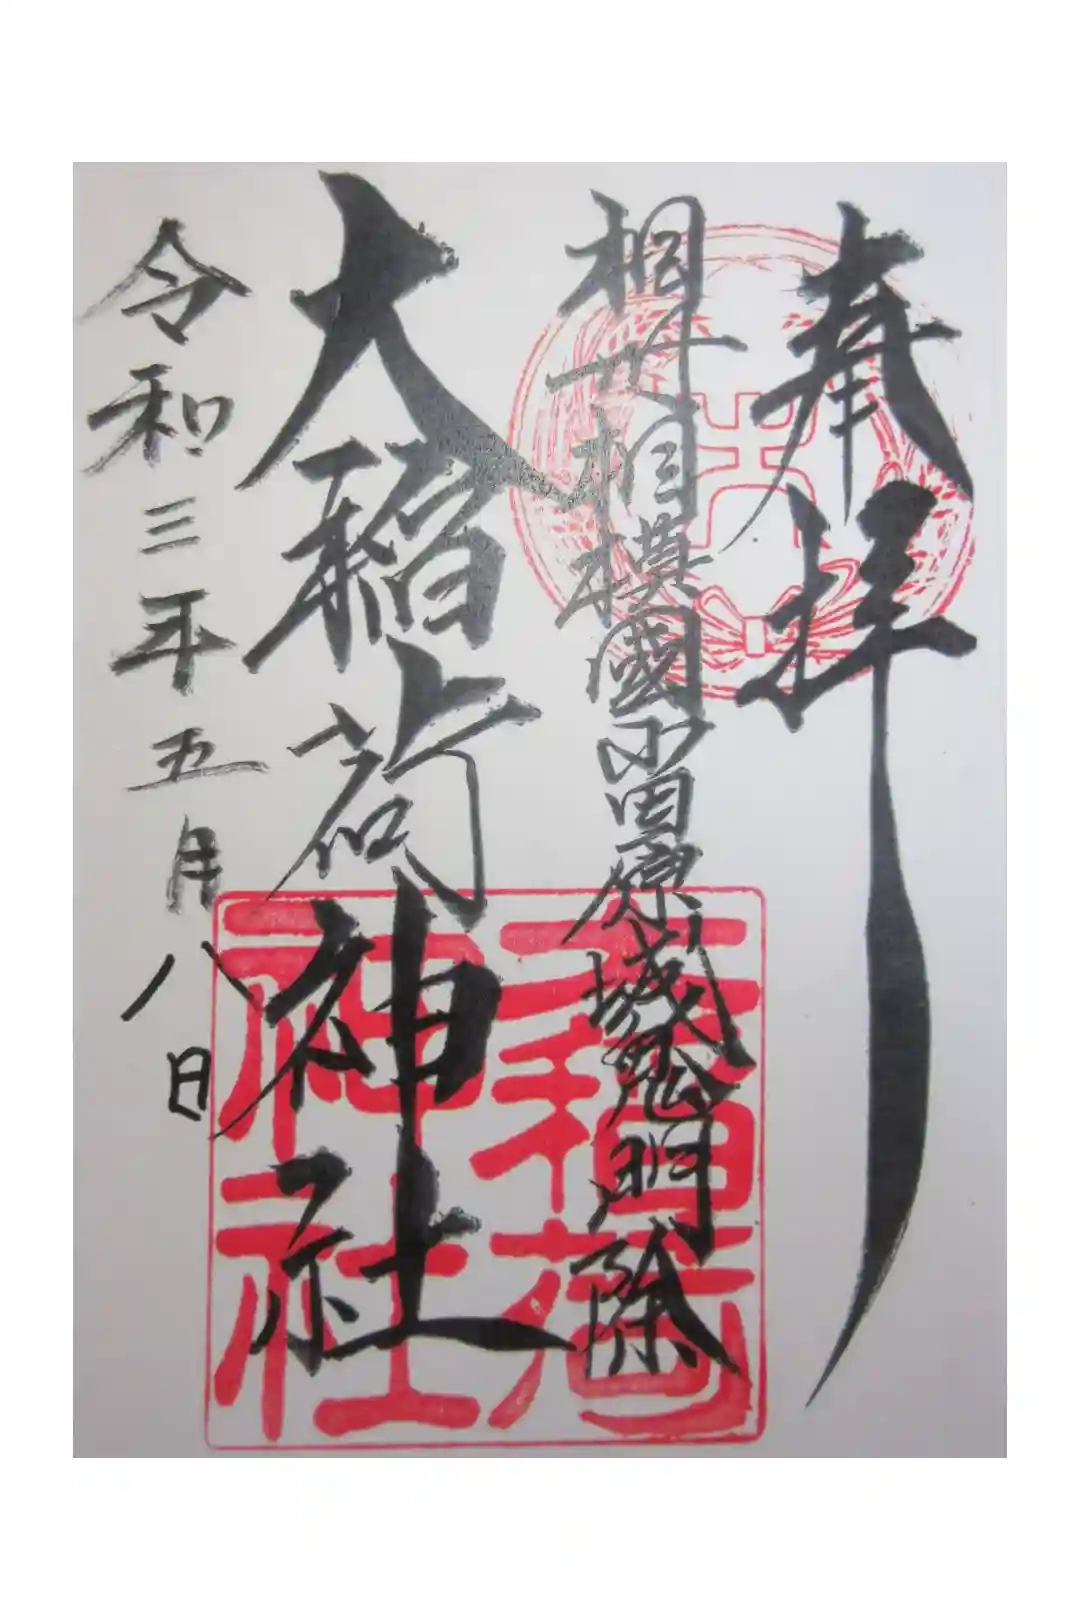 奉拝
相模國小田原城鬼門除
大稲荷神社
令和三年五月八日
大
大稲荷
神社